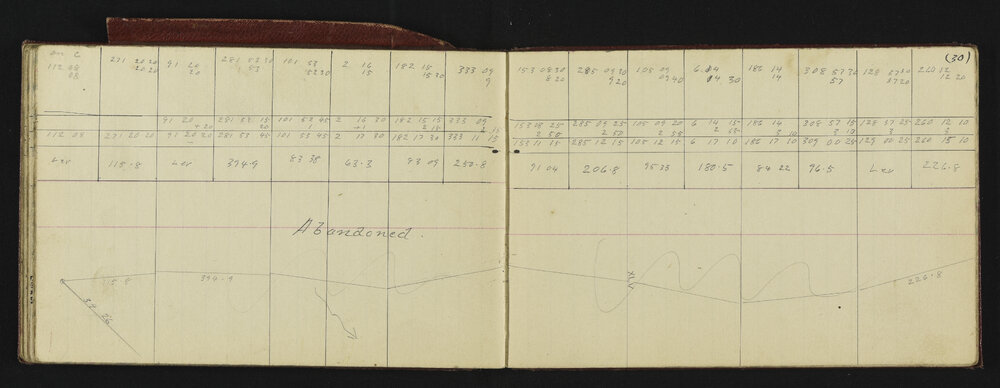 (30)
on C 271 20 20 91 20 281 53 30 101 53 2 16 182 15 333 09 153 08 30 285 09 30 105 09 6 14 186 14 308 57 30 128 260 12
112 08 20 20 20 53 53 30 15 15 30 9 8 20 9 20 09 40 14 30 14 57 57 20 12 20
08
91 20 281 53 15 101 53 45 2 16 30 182 15 15 333 09 153 08 25 285 09 25 105 09 20 6 14 15 186 14 308 57 15 128 57 25 260 12 10
2 15 2 50 2 50 2 55 3 10 3 10 3 3
112 08 271 20 20 91 20 20 281 53 45 101 53 45 2 17 30 182 17 30 333 11 15 153 11 15 285 12 15 105 12 15 6 17 10 186 17 10 309 00 25 129 00 25 260 15 10
Lev 115.8 Lev 394.9 83 38 63.3 93 09 250.8 91 04 206.8 95 33 180.5 84 22 96.5 Lev 226.8
Abandoned.
115.8
394.9
34 26
XLV
226.8